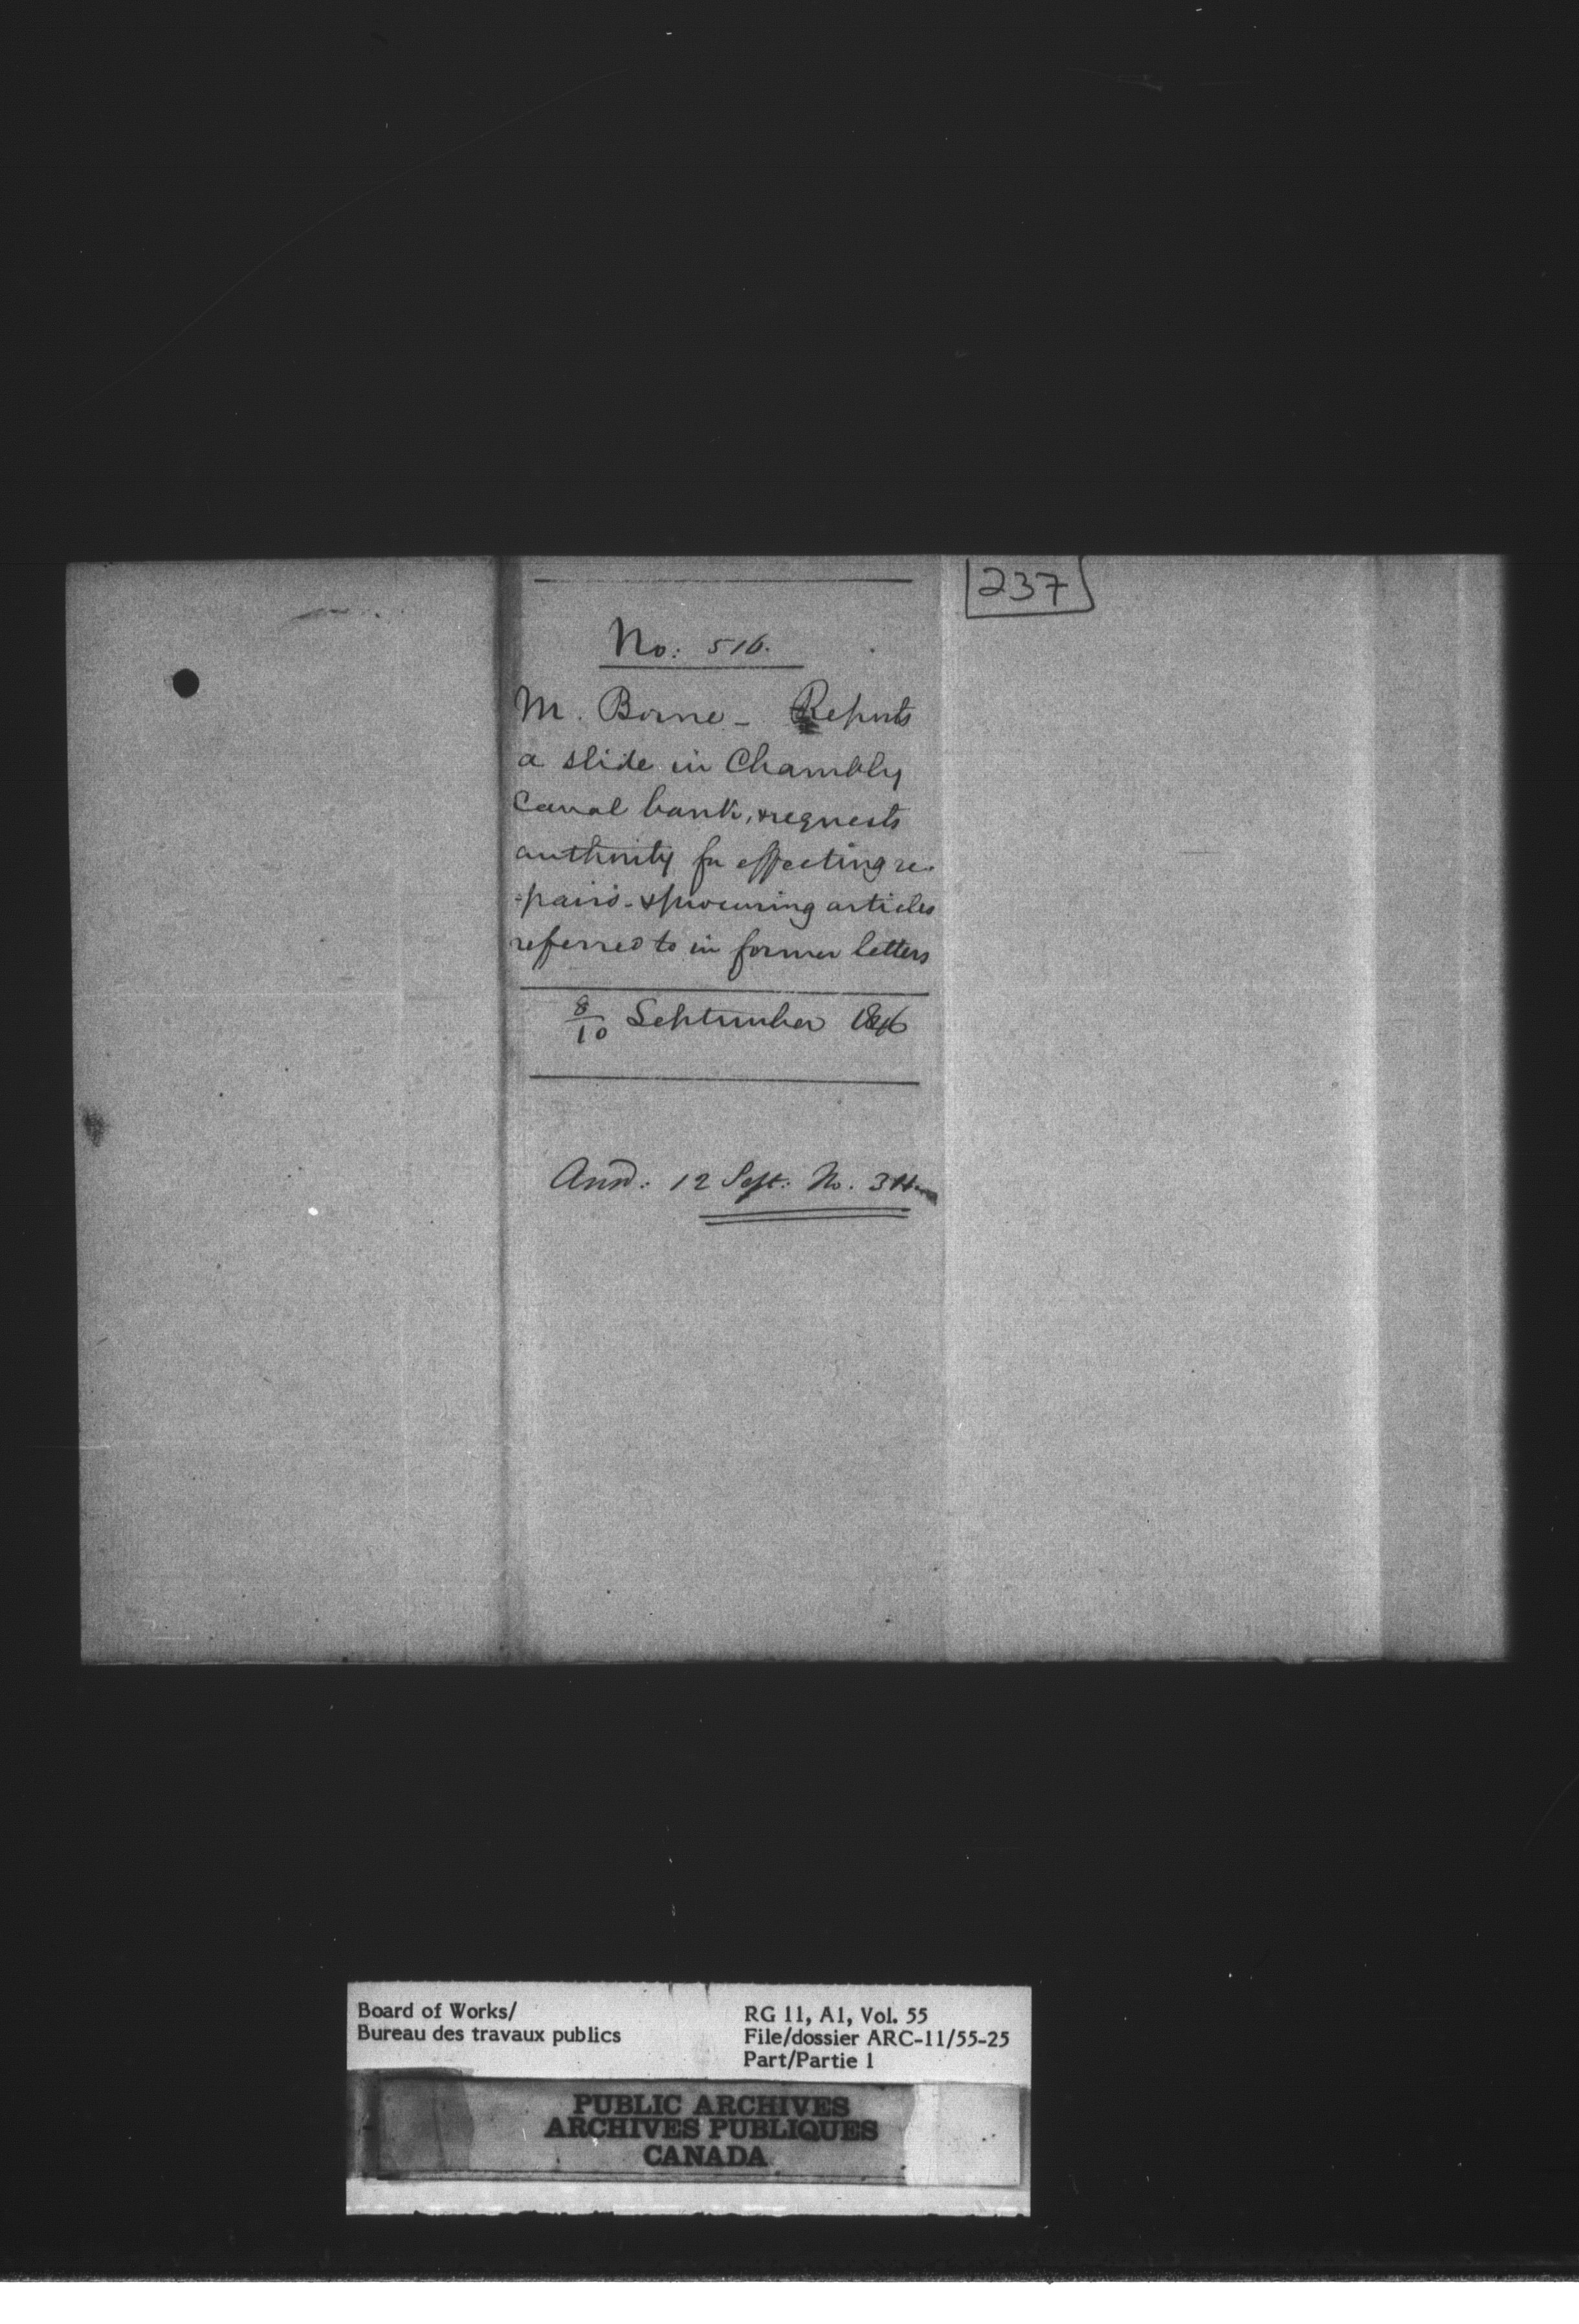 237
No: 516.
M. Borne - Reports
a slide in Chambly
Canal bank, & requests
authority for effecting re-
-pairs - & procuring articles
referred to in former letters
8/10 September 1846
Ansd: 12 Sept: No.
Board of Works/
Bureau des travaux publics
RG 11, A1, Vol. 55
File/dossier ARC-11/55-25
Part/Partie 1
PUBLIC ARCHIVES
ARCHIVES PUBLIQUES
CANADA